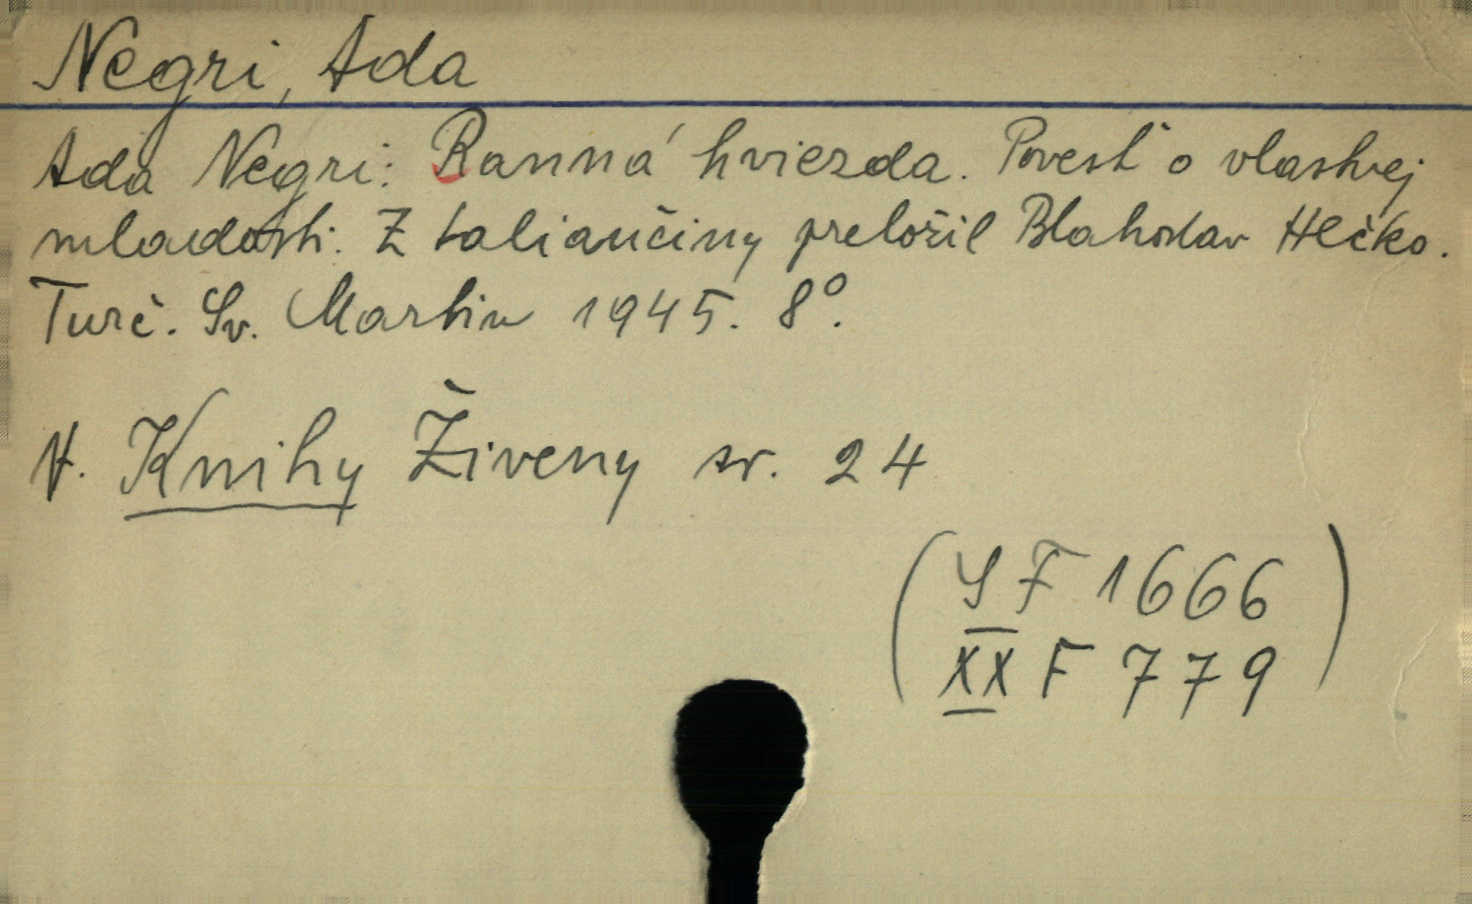 Negri, Ada
Ada Negri: Ranná hviezda. Povesť o vlastnej
mladosti. Z taliančiny preložil Blahoslav Hečko.
Turč. Sv. Martin 1945. 8°.
V. Knihy Živeny sv. 24
(SF 1666
XX F 779)